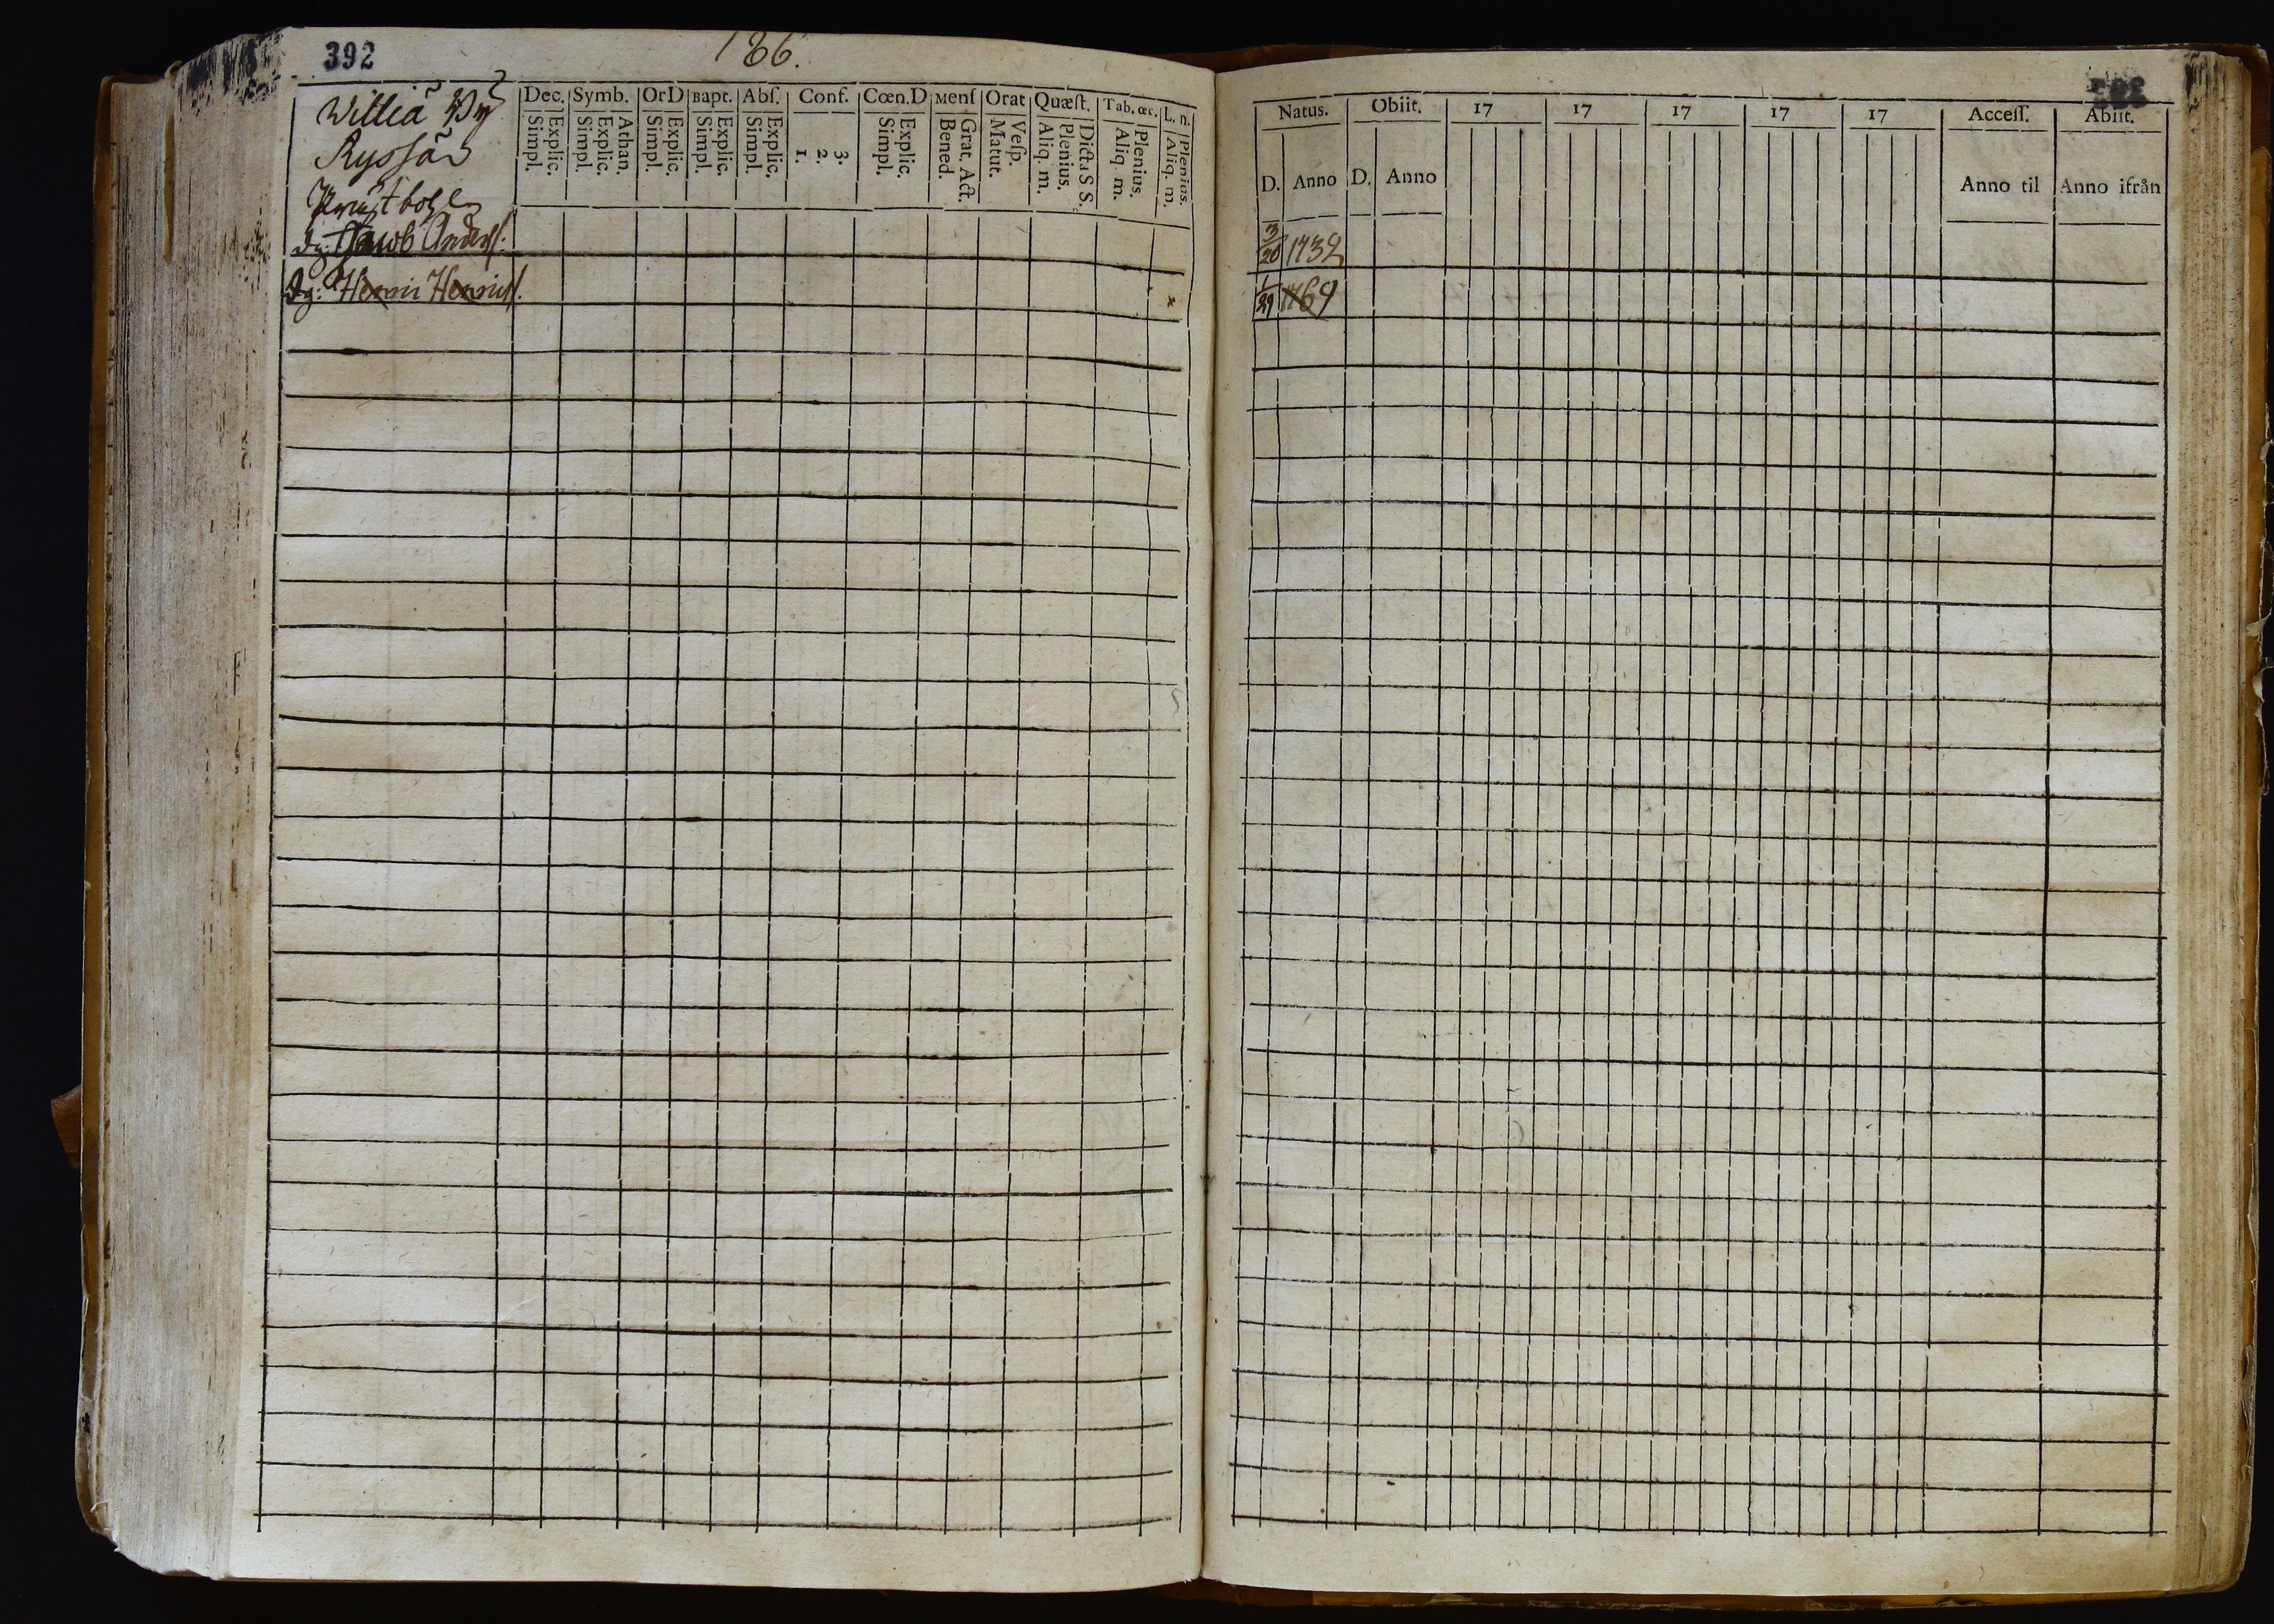 392
186.
Williä By
Ryssän
Knustböle
Dg: Jacob Anders/.
Dg: Henric Henrics/.
Dec. Symb. OrD Bapt. Abſ. Conf. Cœn.D Menſ Orat Quæſt. Tab. œc. L. n.
Explic. Simpl. Athan. Explic. Simpl. Explic. Simpl. Explic. Simpl. Explic. Simpl. 3. 2. 1. Explic. Simpl. Grat. Act. Bened. Veſp. Matut. Dicta S S. Plenius. Aliq. m. Plenius. Aliq. m. Plenius. Aliq. m.
x
Natus. Obiit. 17 17 17 17 17 Acceſſ. Abiit.
D. Anno D. Anno Anno til Anno ifrån
3/20 1732
1/29 1769